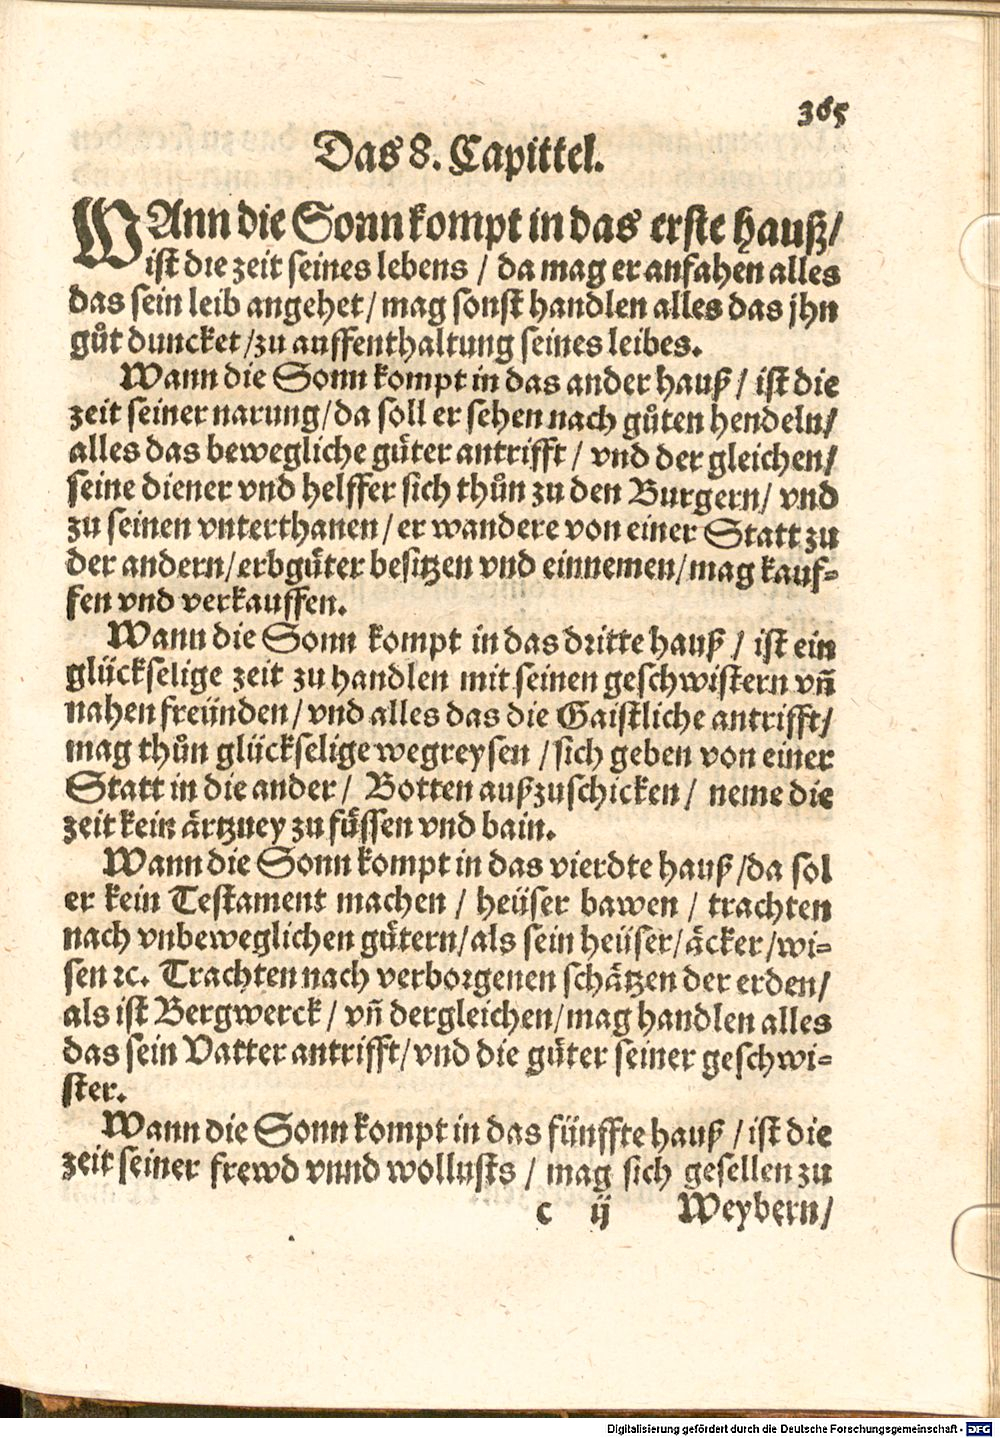 365
Das 8. Capittel.
WAnn die Sonn kompt in das erste hauß/
ist die zeit seines lebens / da mag er anfahen alles
das sein leib angehet/ mag sonst handlen alles das jhn
gůt duncket/zu auffenthaltung seines leibes.
Wann die Sonn kompt in das ander hauß / ist die
zeit seiner narung/da soll er sehen nach gůten hendeln/
alles das bewegliche gůter antrifft / vnd der gleichen/
seine diener vnd helffer sich thůn zu den Burgern/ vnd
zu seinen vnterthanen/ er wandere von einer Statt zu
der andern/ erbgůter besitzen vnd einnemen/mag kauf-
fen vnd verkauffen.
Wann die Sonn kompt in das dritte hauß / ist ein
glückselige zeit zu handlen mit seinen geschwistern vñ
nahen freünden/ vnd alles das die Gaistliche antrifft/
mag thůn glückselige wegreysen /sich geben von einer
Statt in die ander/ Botten außzuschicken/ neme die
zeit kein ärtzney zu füssen vnd bain.
Wann die Sonn kompt in das vierdte hauß/da sol
er kein Testament machen / heüser bawen / trachten
nach vnbeweglichen gütern/als sein heüser/äcker/wi-
sen ꝛc. Trachten nach verborgenen schätzen der erden/
als ist Bergwerck/ vñ dergleichen/mag handlen alles
das sein Vatter antrifft/vnd die güter seiner geschwi-
ster.
Wann die Sonn kompt in das fünffte hauß / ist die
zeit seiner frewd vnnd wollusts / mag sich gesellen zu
c ij Weybern/
Digitalisierung gefördert durch die Deutsche Forschungsgemeinschaft - DFG